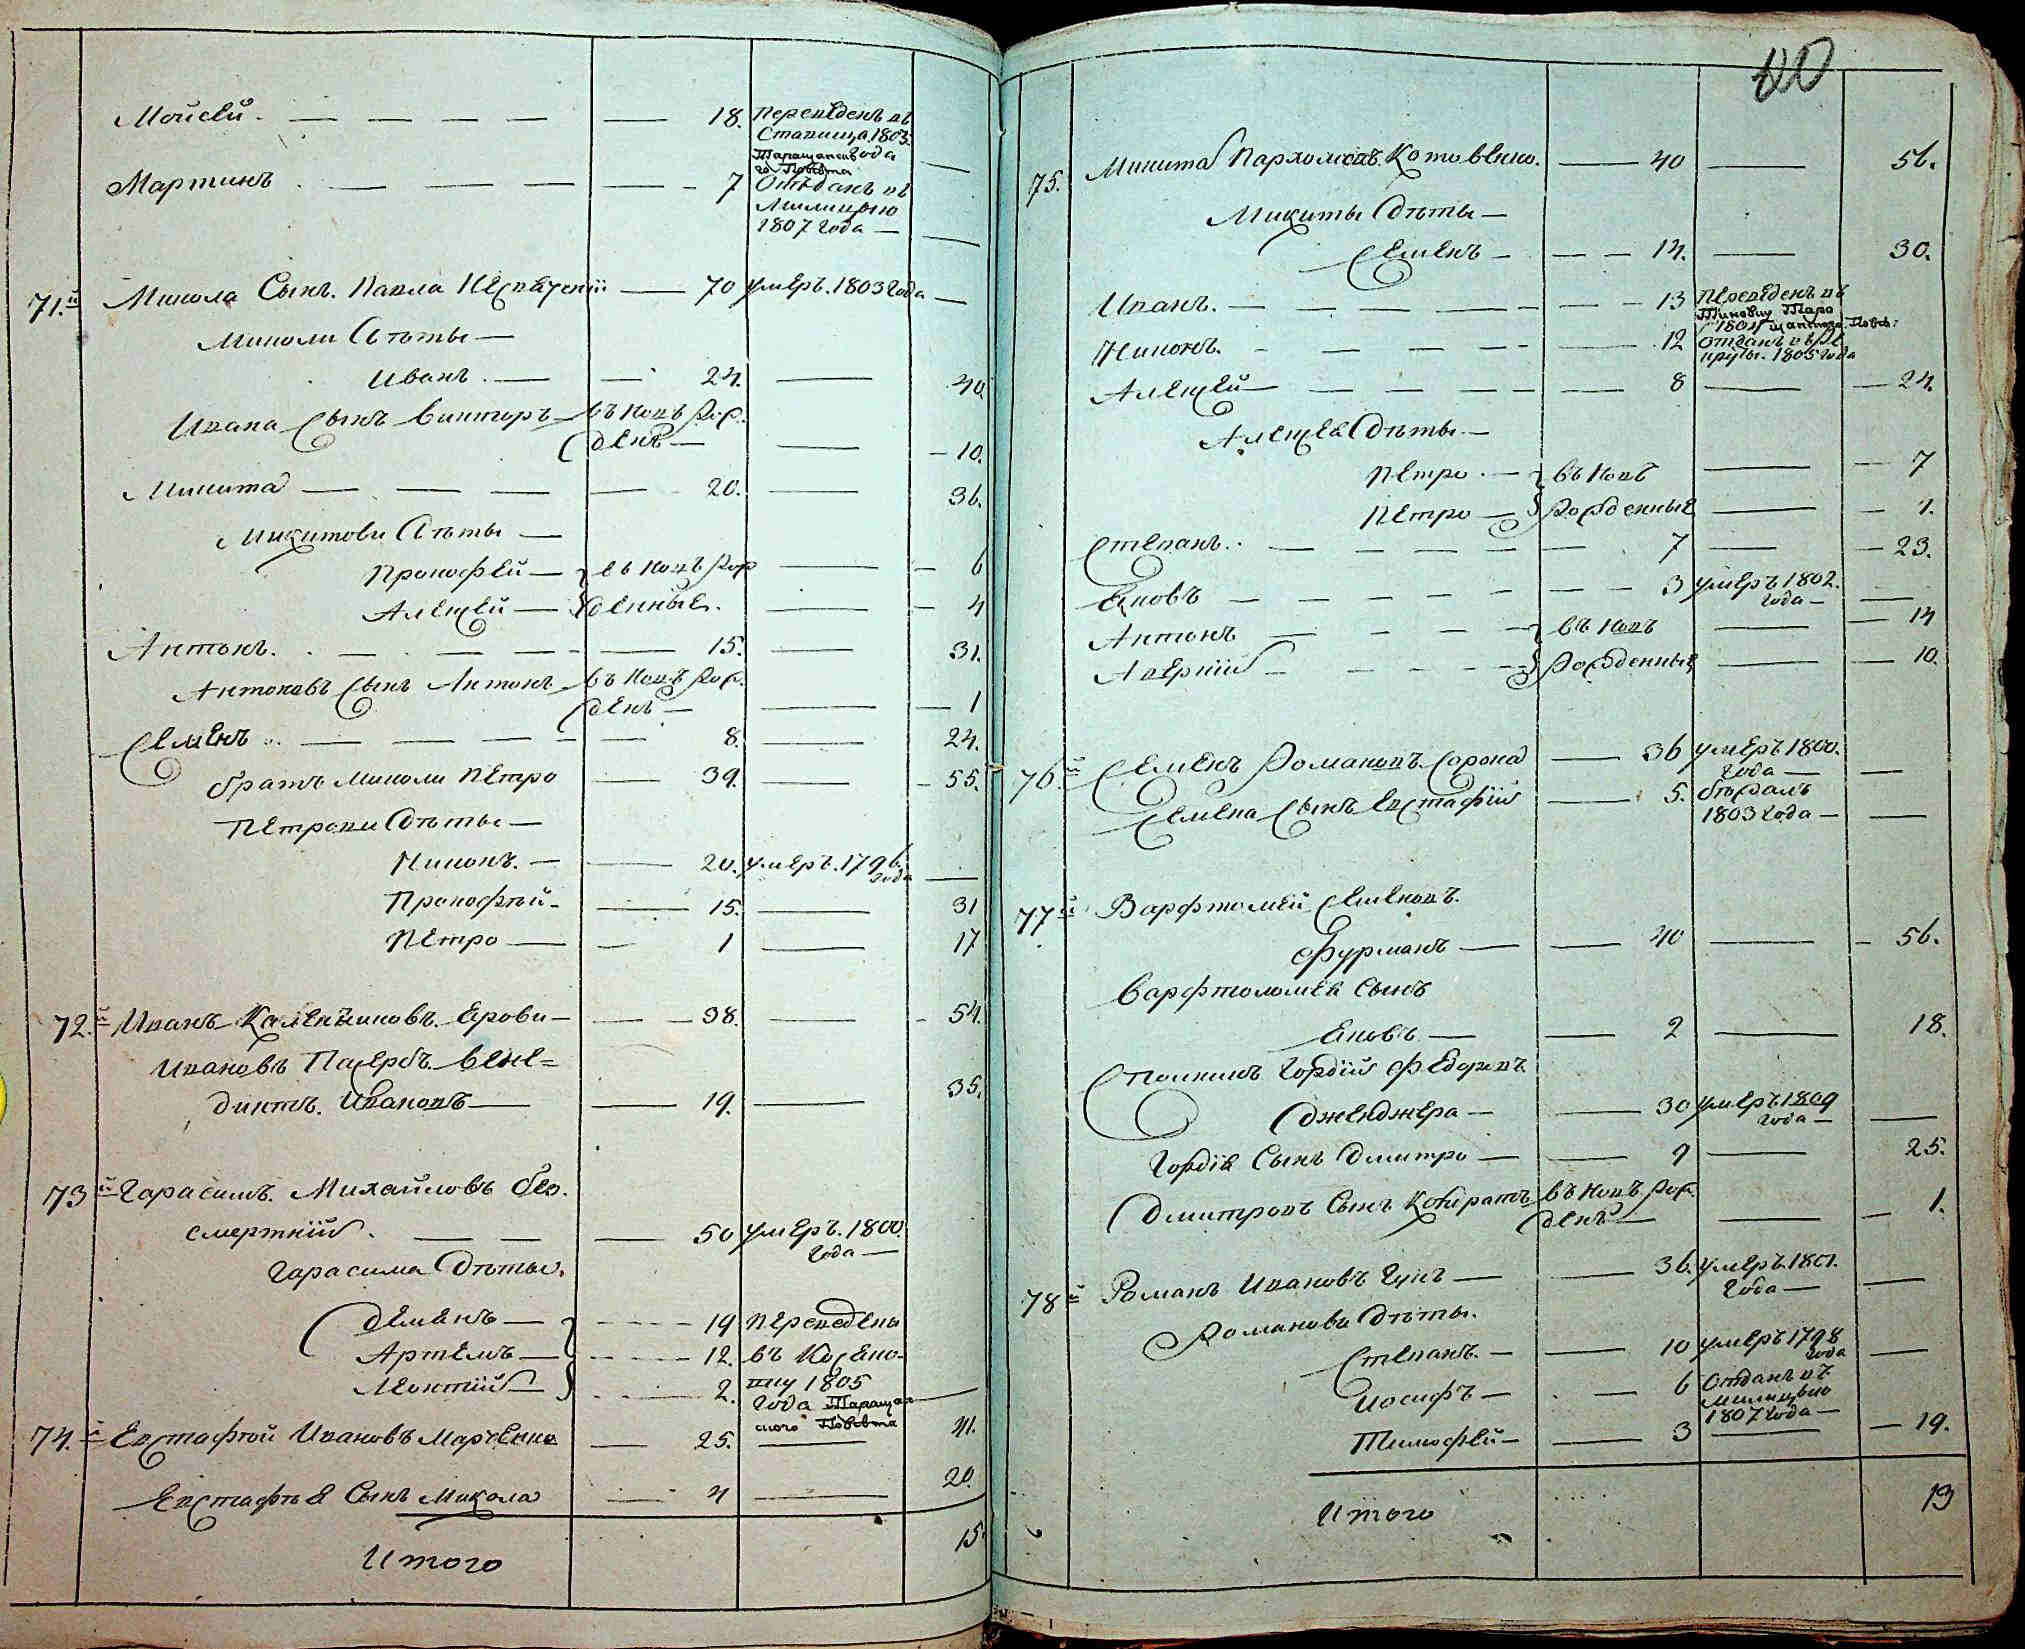 Мойсей. 18. Переведенъ въ
Ставища. 1803.
Таращанска года
го Повѣта
Мартинъ 7 Отъданъ въ
Милицию
1807 года
71.й Микола Сынъ. Павла 70 умеръ. 1803 года
Миколи Дѣты
Иванъ. 24. 40.
Ивана Сынъ Викторъ въ новъ рож.
денъ 10.
Микита 20. 36.
Микитови Дѣты
Прокофей въ новъ рож 6
Алексей денные. 4
Антонъ. 15. 31.
Антоновъ Сынъ Антонъ въ новъ рож.
денъ 1
Семенъ 8. 24.
братъ Миколи Петро 39. 55.
Петрови Дѣты
Никонъ. 20. умеръ. 1796.
года
Прокофѣй 15. 31
Петро 1 17
72.й Иванъ Калениковъ Ерови 38. 54.
Ивановъ Пасербъ. Вене=
диктъ. Ивановъ 19. 35.
73й Гарасимъ. Михайловъ без.
смертній. 50 умеръ. 1800.
года
Гарасима Дѣты.
Демянъ 19 переведены
Артемъ 12. въ Косяко
Леонтій 2. вку 1805
года Таращан
ского Повѣта
74.й Евстафѣй Ивановъ Марченко 25. 41.
Евстафѣя Сынъ Микола 4 20.
Итого 15.
40
75. Микита Пархомовъ. Котовенко. 40 56.
Микиты Дѣты
Семенъ 14. 30.
Иванъ. 13 Переведенъ въ
Тиновку Тара
1804 щанского Повѣ:
Никонъ. 12 отданъ въ Ре
круты. 1805 года
Алексей 8 24.
Алексея Дѣты.
Петро въ новъ 7
Петро рожденные 1.
Степанъ. 7 23.
Яковъ 3 умеръ 1802.
года
Антонъ въ новъ 14
Аверкій рожденные 10.
76.й Семенъ Романовъ Сорока 36 умеръ 1800.
года
Семена Сынъ Евстафій 5. бѣжалъ
1803 года
77й Варфтомей Семеновъ.
Фурманъ 40 56.
Варфтоломея Сынъ
Яковъ 2 18.
Гордій Федоровъ
Дженджера 30 умеръ 1809
года
Гордія Сынъ Дмитро 9 25.
Дмитровъ Сынъ Кондратъ въ новъ рож.
денъ 1.
78й Романъ Ивановъ Гукъ 36. умеръ. 1801.
года
Романови Дѣты.
Степанъ. 10 умеръ 1798
года
Иосифъ 6 Отданъ въ
милицию
1807 года
Тимофей 3 19.
Итого 13